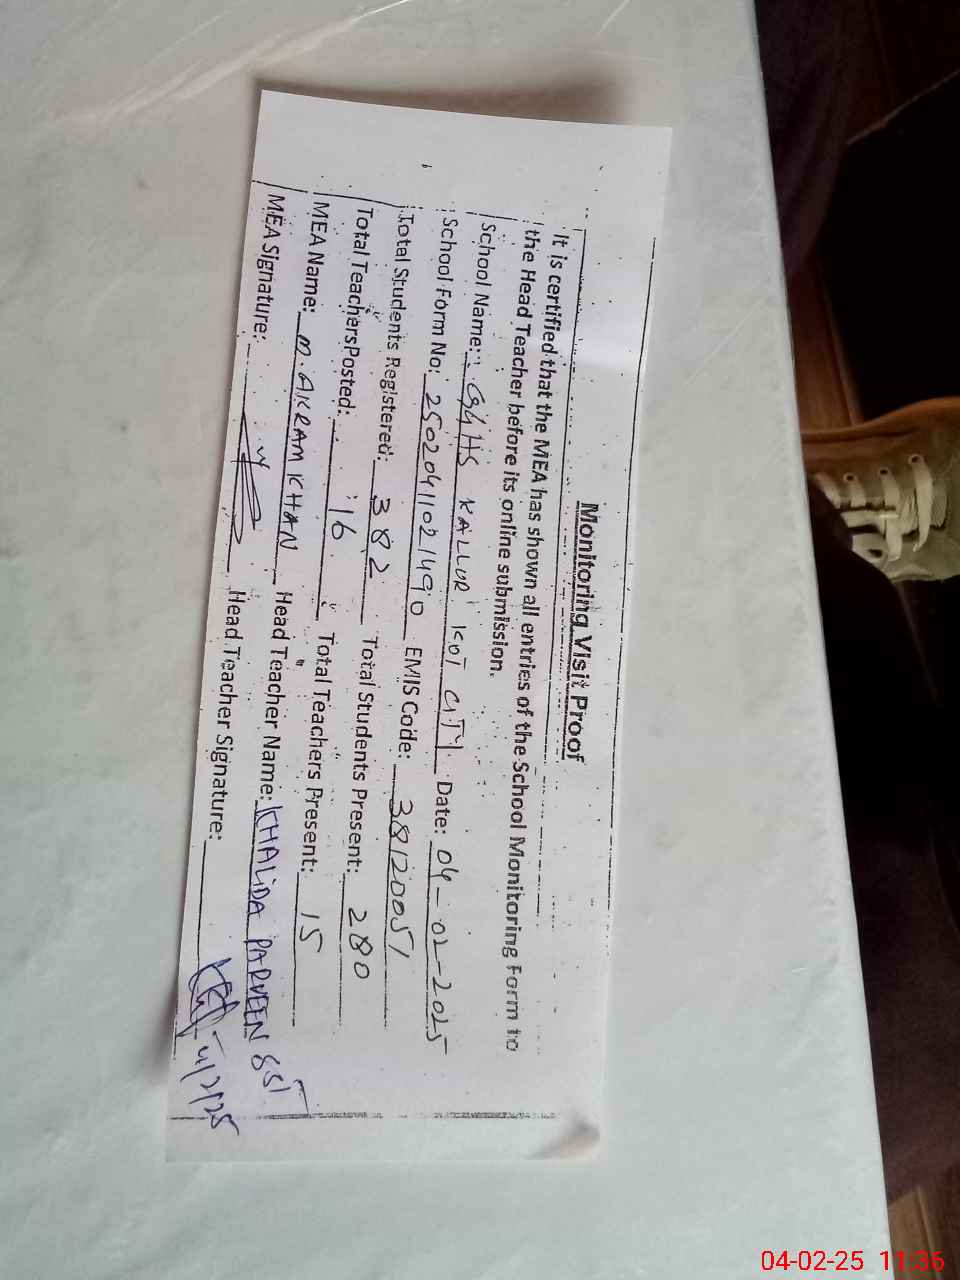 Monitoring Visit Proof
It is certified that the MEA has shown all entries of the School Monitoring Form to
the Head Teacher before its online submission.
School Name: GGHS KALLUR KOT CITY Date: 04-02-2025
School Form No: 25020411021490 EMIS Code: 38120051
Total Students Registered: 382 Total Students Present: 280
Total Teachers Posted: 16 Total Teachers Present: 15
MEA Name: M. AKRAM KHAN Head Teacher Name: KHALIDA PARVEEN SST
MEA Signature: Head Teacher Signature: 4/2/25
04-02-25 11:36